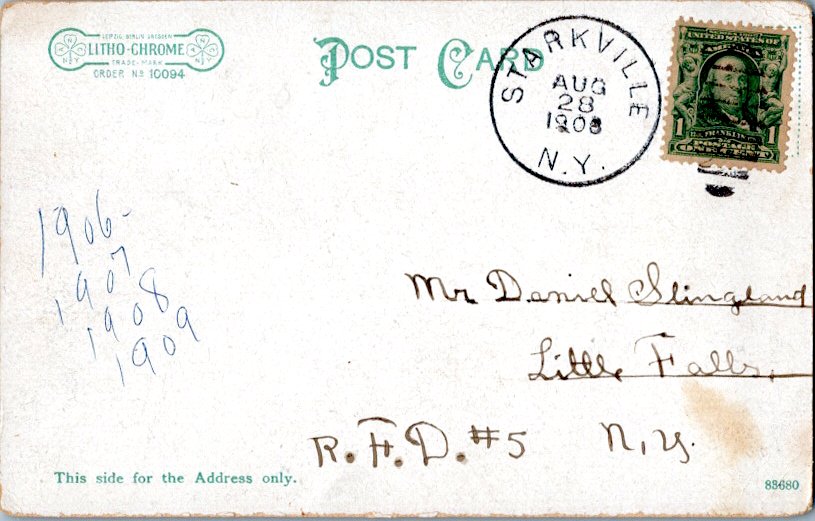 LEIPZIG BERLIN DRESDEN
LITHO-CHROME
TRADE-MARK
ORDER Nº 10094
POST CARD
STARKVILLE
AUG
28
1908
N.Y.
UNITED STATES OF
AMERICA
1 1
POSTAGE
ONE CENT
1906-
1907
1908
1909
Mr Daniel Slingland
Little Falls,
R.F.D. #5 N,Y.
This side for the Address only.
83680